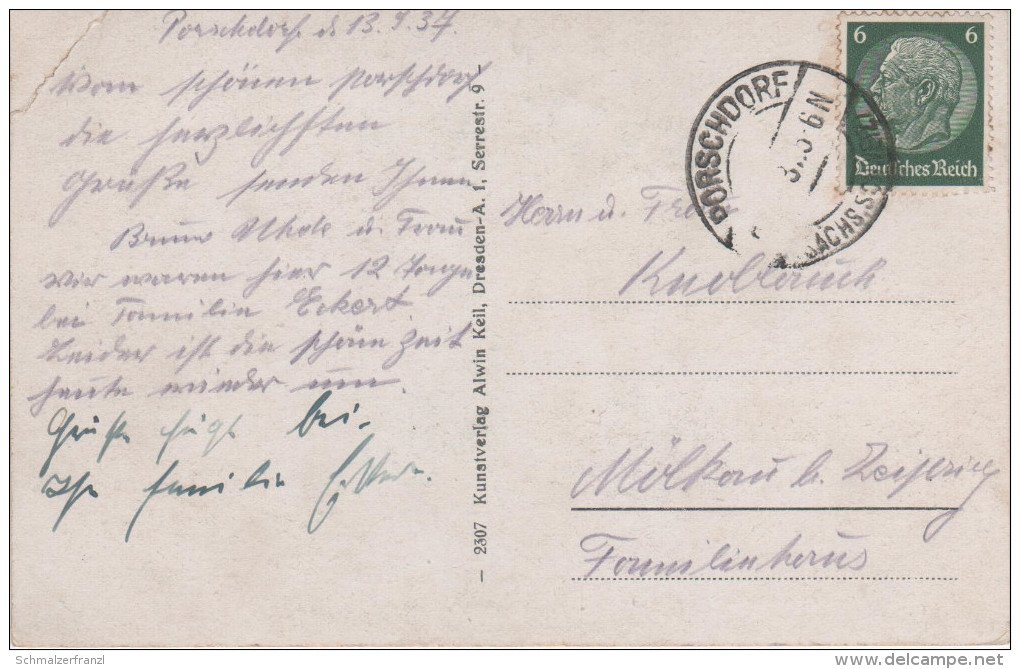 Porschdorf d. 13.7.37.
Vom schönen Porschdorf
die herzlichsten
Grüße senden Ihnen
Bruno u. Frau
Wir waren hier 12 Tage
bei Familie Eckert
Leider ist die schöne Zeit
heute wieder um.
Grüße fügt bei.
Ihre Familie
— 2307 Kunstverlag Alwin Keil, Dresden-A. 1, Serrestr. 9 —
6 6
Deutsches Reich
PORSCHDORF
Herrn u. Frau
Knoblauch
Mölkau b. Leipzig
Familienhaus
Schmalzerfranzl
delcampe.net